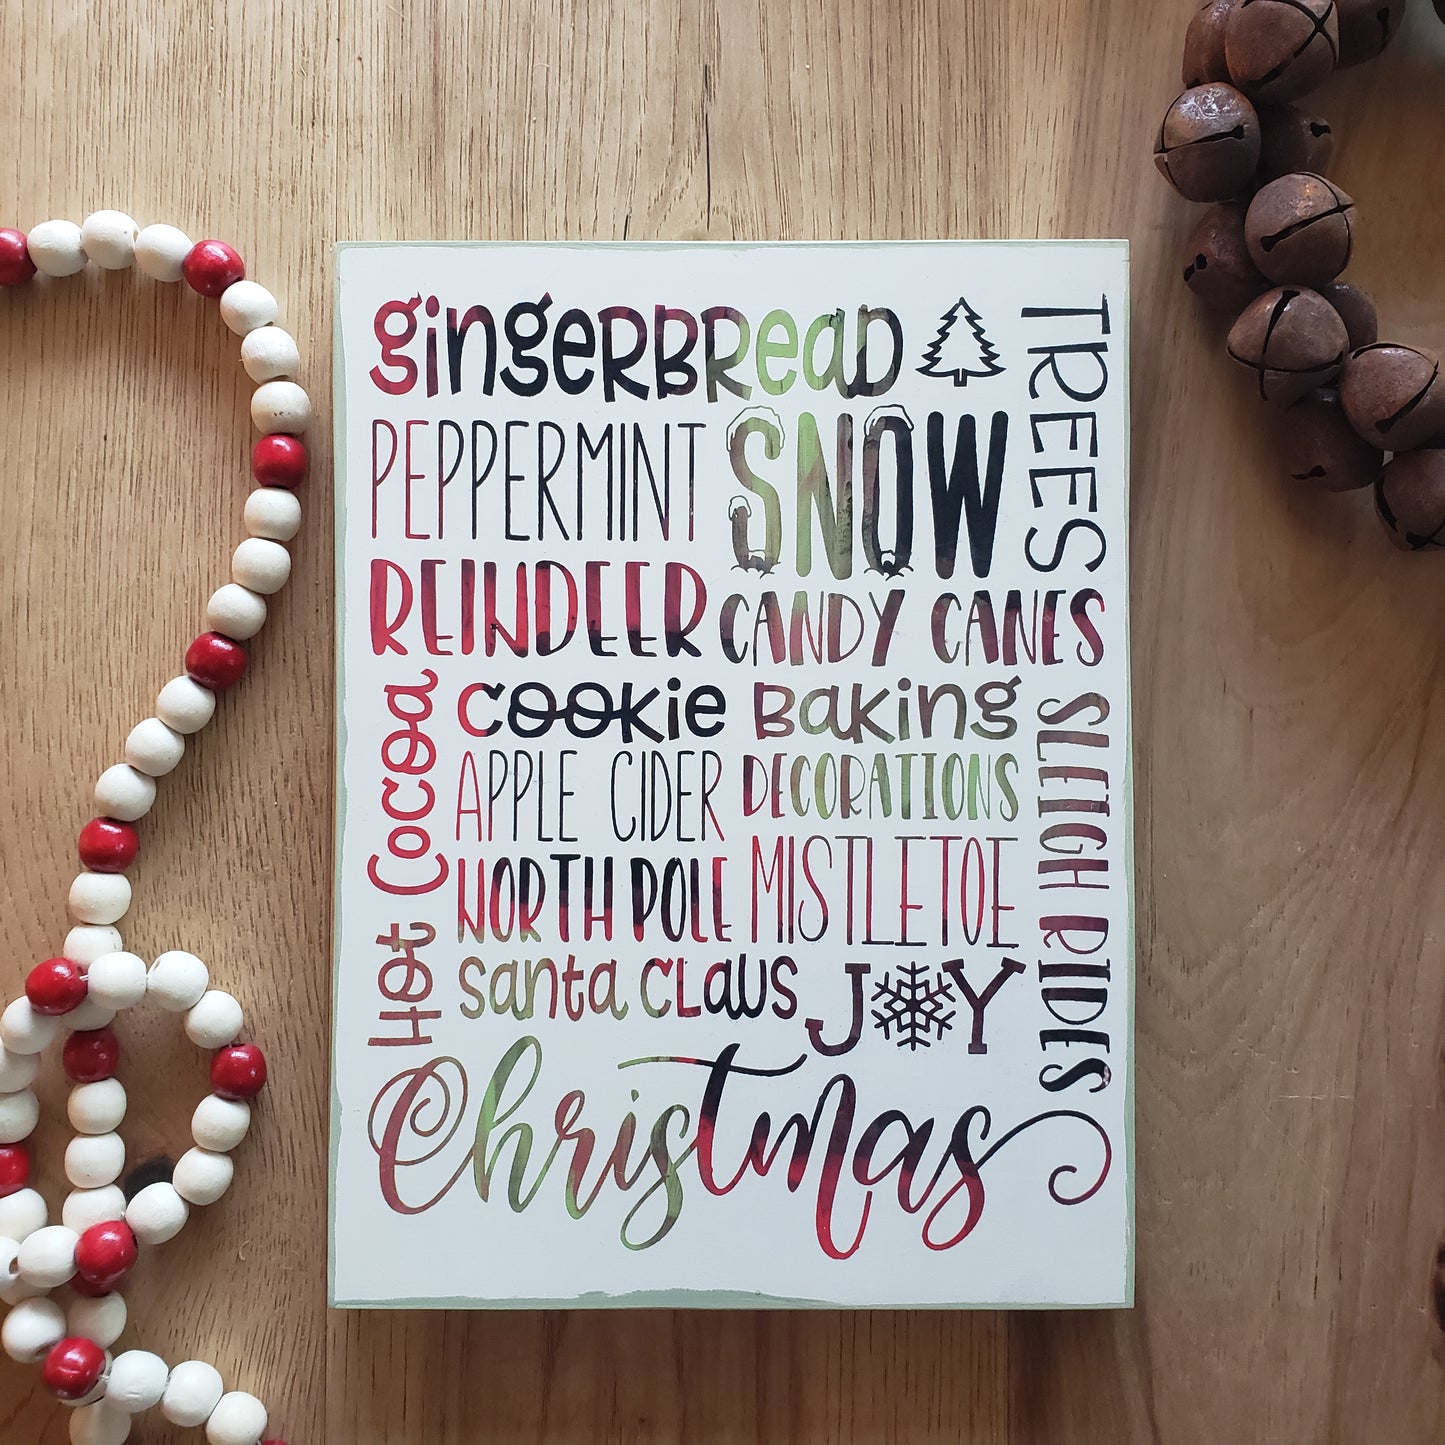 gingerbread
TREES
PEPPERMINT
SNOW
REINDEER
CANDY CANES
Hot Cocoa
cookie Baking
SLEIGH RIDES
APPLE CIDER
DECORATIONS
NORTH POLE
MISTLETOE
santa claus
JOY
Christmas